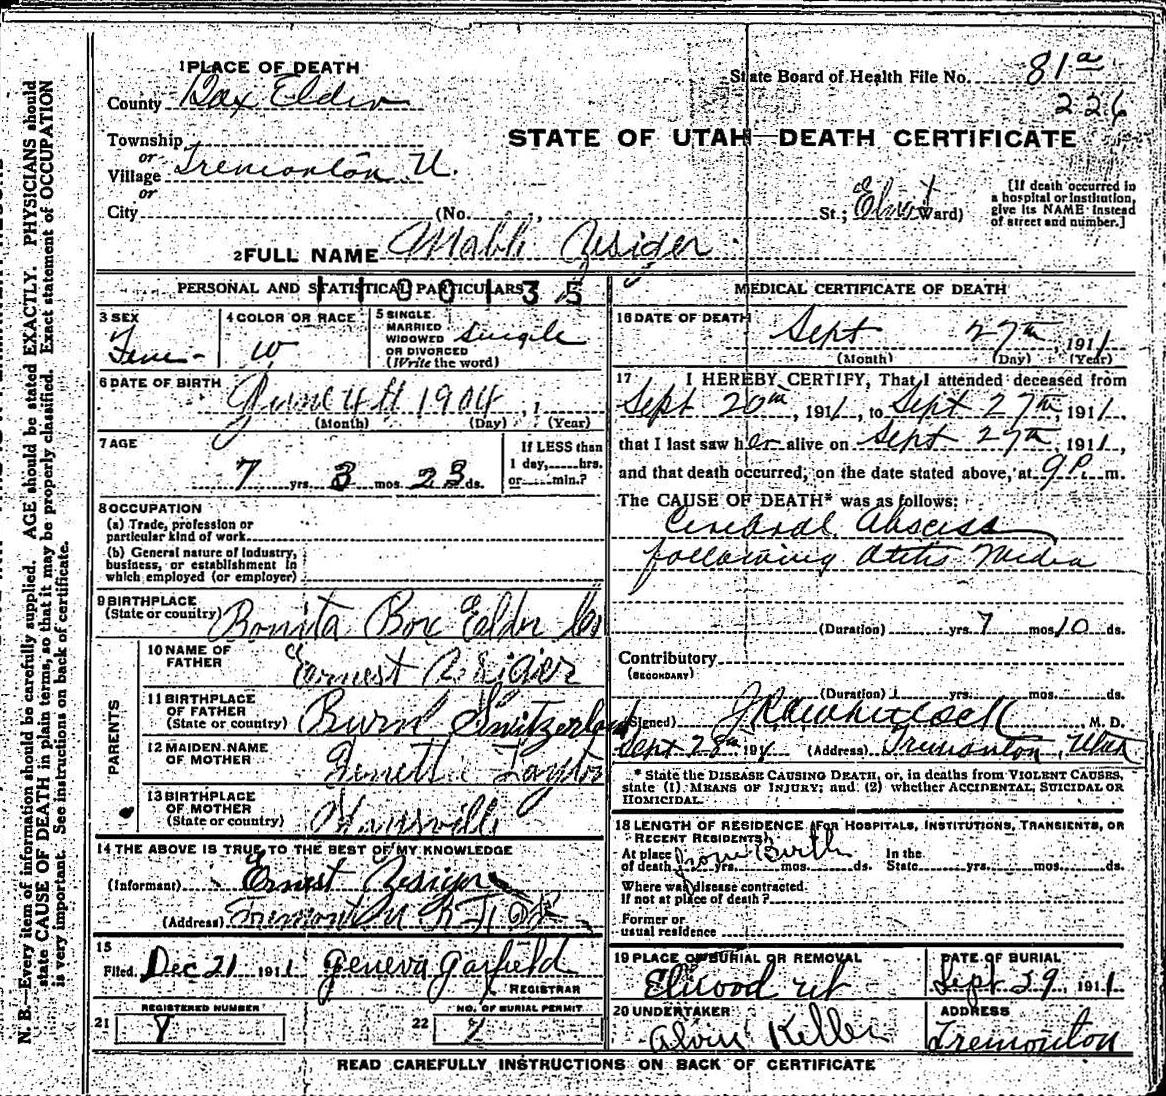 1 PLACE OF DEATH
County Box Elder
Township
or
Village Tremonton U.
or
City (No. , St.; Ward)
State Board of Health File No. 81a
226
STATE OF UTAH—DEATH CERTIFICATE
[If death occurred in
a hospital or institution,
give its NAME instead
of street and number.]
2 FULL NAME Mable Zesiger
PERSONAL AND STATISTICAL PARTICULARS
1100135
3 SEX
Fem-
4 COLOR OR RACE
W
5 SINGLE
MARRIED
WIDOWED
OR DIVORCED
(Write the word)
Single
6 DATE OF BIRTH
June 4th 1904
(Month) (Day) (Year)
7 AGE
7 yrs. 3 mos. 23 ds.
If LESS than
1 day, hrs.
or min.?
8 OCCUPATION
(a) Trade, profession or
particular kind of work
(b) General nature of industry,
business, or establishment in
which employed (or employer)
9 BIRTHPLACE
(State or country) Bonita Box Elder Co
PARENTS
10 NAME OF
FATHER Ernest Zesiger
11 BIRTHPLACE
OF FATHER
(State or country) Burnd Switzerland
12 MAIDEN NAME
OF MOTHER Layton
13 BIRTHPLACE
OF MOTHER
(State or country)
14 THE ABOVE IS TRUE TO THE BEST OF MY KNOWLEDGE
(Informant) Ernest Zesiger
(Address) Tremont U R F D
15
Filed Dec 21 1911 Geneva Garfield
REGISTRAR
REGISTERED NUMBER
21
NO. OF BURIAL PERMIT
22
MEDICAL CERTIFICATE OF DEATH
16 DATE OF DEATH
Sept 27th 1911
(Month) (Day) (Year)
17 I HEREBY CERTIFY, That I attended deceased from
Sept 20th, 1911, to Sept 27th, 1911,
that I last saw her alive on Sept 27th 1911,
and that death occurred, on the date stated above, at 9 P. m.
The CAUSE OF DEATH* was as follows:
Cerebral Abscess
following Otitis Media
(Duration) yrs. 7 mos. 10 ds.
Contributory
(SECONDARY)
(Duration) yrs. mos. ds.
(Signed) Whitlock M. D.
Sept 28th 191 (Address) Tremonton, Utah
* State the DISEASE CAUSING DEATH, or, in deaths from VIOLENT CAUSES,
state (1) MEANS OF INJURY; and (2) whether ACCIDENTAL, SUICIDAL OR
HOMICIDAL.
18 LENGTH OF RESIDENCE (FOR HOSPITALS, INSTITUTIONS, TRANSIENTS, OR
RECENT RESIDENTS)
At place from Birth In the
of death yrs. mos. ds. State yrs. mos. ds.
Where was disease contracted
If not at place of death?
Former or
usual residence
19 PLACE OF BURIAL OR REMOVAL
Elwood Ut
DATE OF BURIAL
Sept 29, 1911.
20 UNDERTAKER
Alvin Keller
ADDRESS
Tremonton
READ CAREFULLY INSTRUCTIONS ON BACK OF CERTIFICATE
N. B.—Every item of information should be carefully supplied. AGE should be stated EXACTLY. PHYSICIANS should
state CAUSE OF DEATH in plain terms, so that it may be properly classified. Exact statement of OCCUPATION
is very important. See instructions on back of certificate.